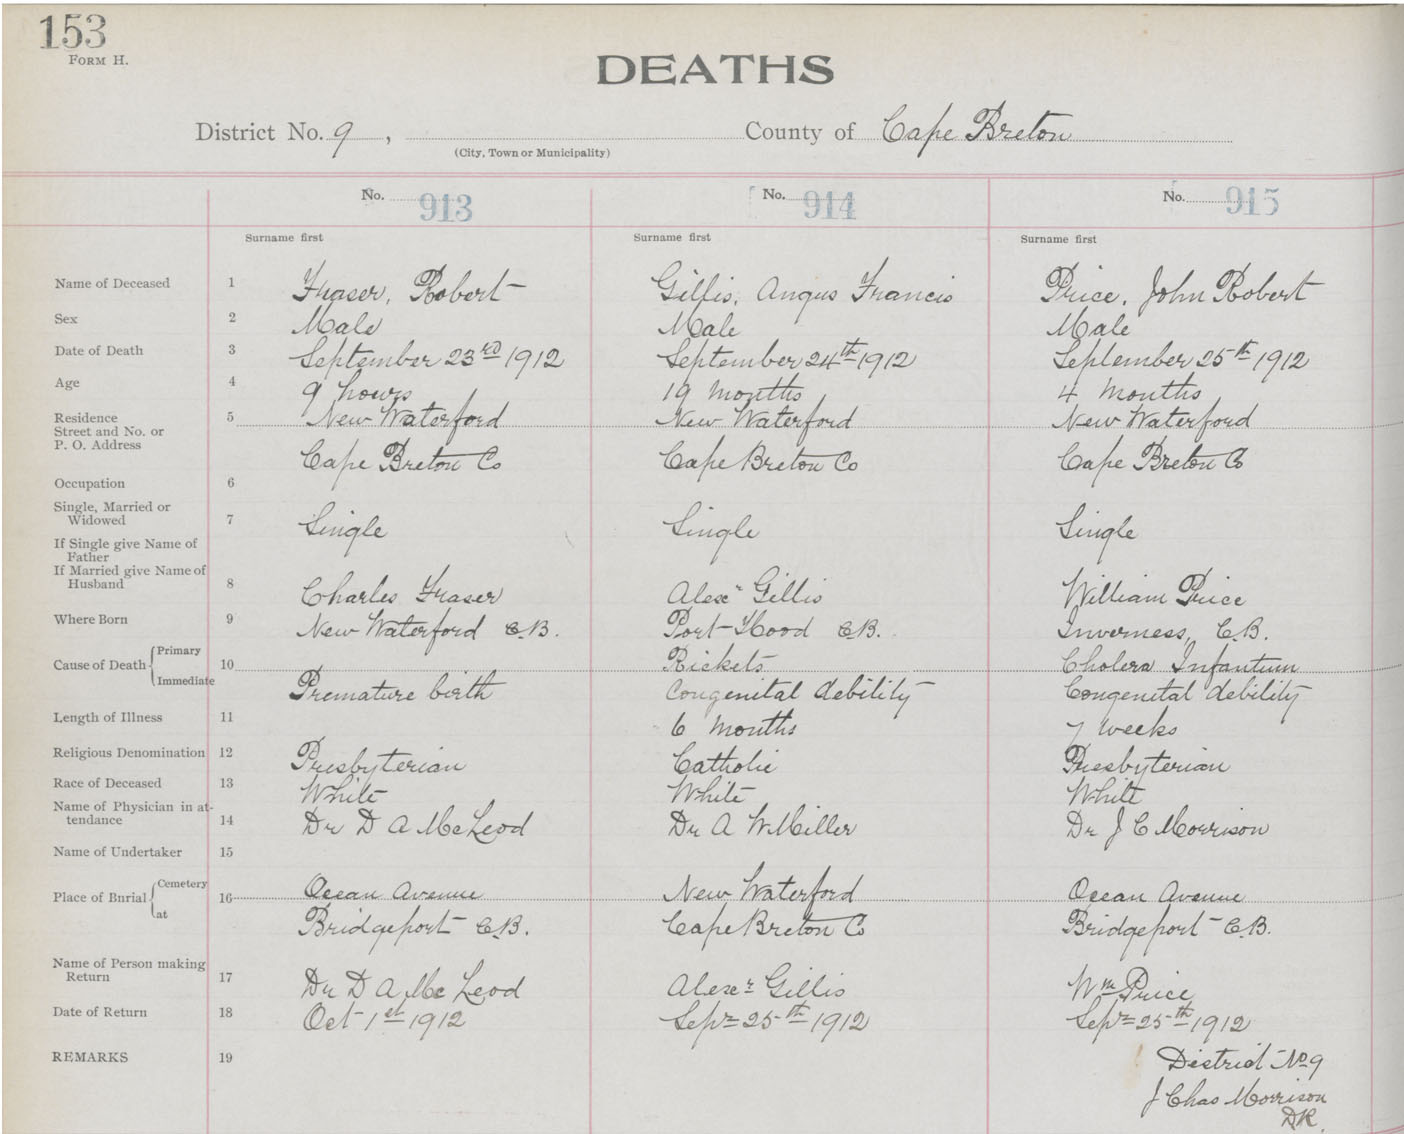 153
FORM H.
DEATHS
District No. 9, County of Cape Breton
(City, Town or Municipality)
No. 913 No. 914 No. 915
Surname first Surname first Surname first
Name of Deceased 1 Fraser, Robert Gillis, Angus Francis Price, John Robert
Sex 2 Male Male Male
Date of Death 3 September 23rd 1912 September 24th 1912 September 25th 1912
Age 4 9 hours 19 months 4 months
Residence 5 New Waterford New Waterford New Waterford
Street and No. or
P. O. Address Cape Breton Co Cape Breton Co Cape Breton Co
Occupation 6
Single, Married or
Widowed 7 Single Single Single
If Single give Name of
Father
If Married give Name of
Husband 8 Charles Fraser Alexr Gillis William Price
Where Born 9 New Waterford C.B. Port Hood C.B. Inverness, C.B.
Cause of Death Primary 10 Rickets Cholera Infantum
Immediate Premature birth Congenital debility Congenital debility
Length of Illness 11 6 months 7 weeks
Religious Denomination 12 Presbyterian Catholic Presbyterian
Race of Deceased 13 White White White
Name of Physician in at-
tendance 14 Dr D A McLeod Dr A W Miller Dr J C Morrison
Name of Undertaker 15
Place of Burial Cemetery 16 Ocean Avenue New Waterford Ocean Avenue
at Bridgeport C.B. Cape Breton Co Bridgeport C.B.
Name of Person making
Return 17 Dr D A Mc Leod Alexr Gillis Wm Price
Date of Return 18 Oct 1st 1912 Sepr 25th 1912 Sepr 25th 1912
REMARKS 19 District No 9
J Chas Morrison
D.R.